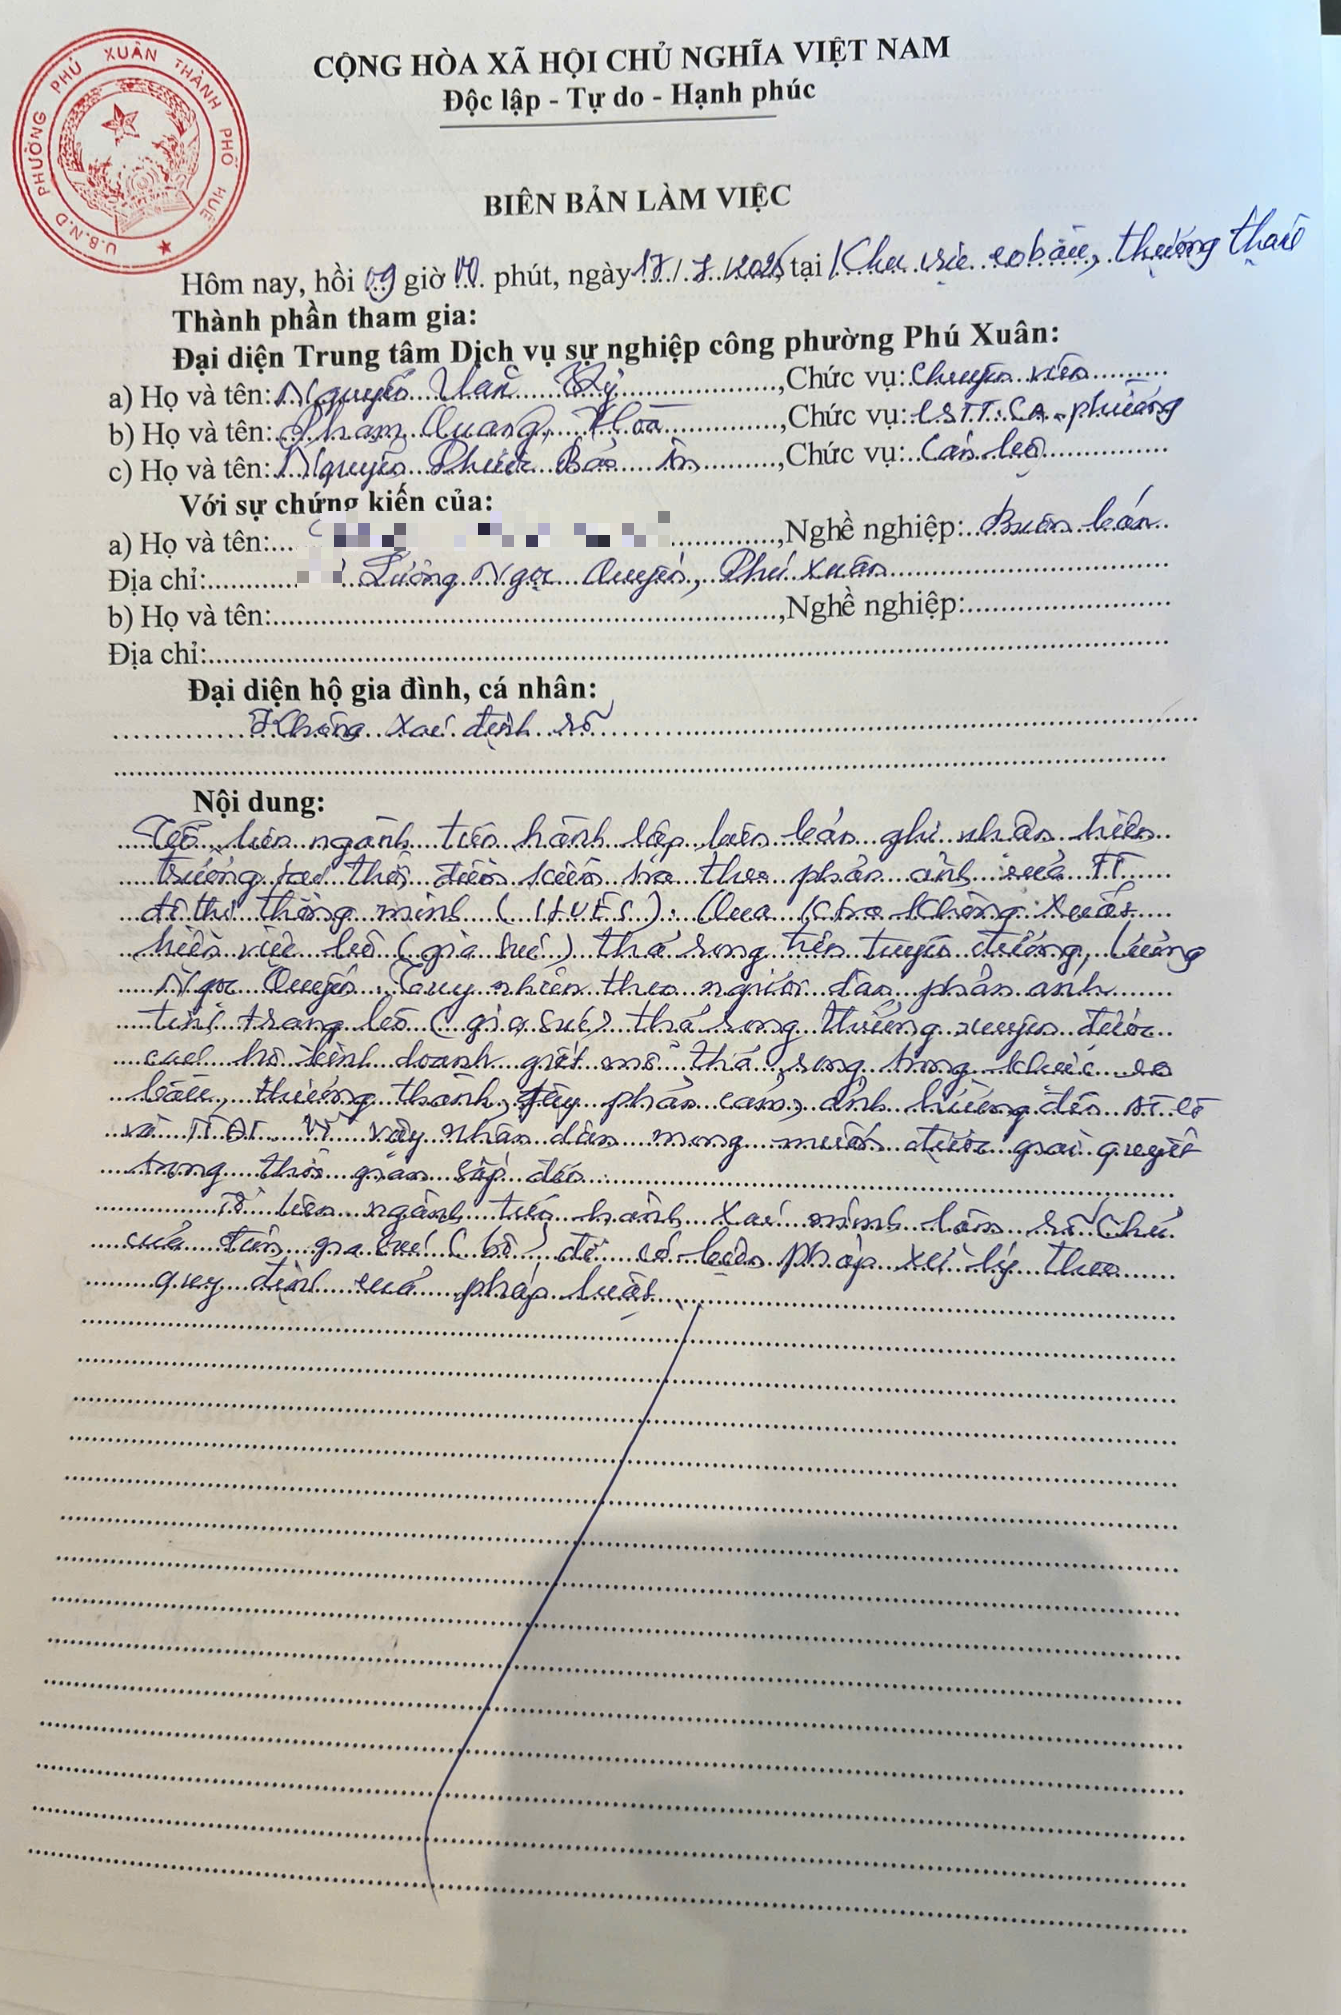 U.B.N.D PHƯỜNG PHÚ XUÂN THÀNH PHỐ HUẾ
VIỆT NAM
CỘNG HÒA XÃ HỘI CHỦ NGHĨA VIỆT NAM
Độc lập - Tự do - Hạnh phúc
BIÊN BẢN LÀM VIỆC
Hôm nay, hồi 09 giờ 00 phút, ngày 17/7/2025, tại Khu vực eo bầu, thượng thành
Thành phần tham gia:
Đại diện Trung tâm Dịch vụ sự nghiệp công phường Phú Xuân:
a) Họ và tên: Nguyễn Văn Kỷ, Chức vụ: Chuyên viên
b) Họ và tên: Phạm Quang Hòa, Chức vụ: CSTT. CA. phường
c) Họ và tên: Nguyễn Phước Bảo Ân, Chức vụ: Cán bộ
Với sự chứng kiến của:
a) Họ và tên:, Nghề nghiệp: Buôn bán
Địa chỉ: Lương Ngọc Quyến, Phú Xuân
b) Họ và tên:, Nghề nghiệp:
Địa chỉ:
Đại diện hộ gia đình, cá nhân:
Không xác định rõ
Nội dung:
Tổ liên ngành tiến hành lập biên bản ghi nhận hiện
trường tại thời điểm kiểm tra theo phản ánh của TT
đô thị thông minh (HUES). Qua kiểm tra không xuất
hiện việc bò (gia súc) thả rong trên tuyến đường Lương
Ngọc Quyến. Tuy nhiên theo người dân phản ánh
tình trạng bò (gia súc) thả rong thường xuyên được
các hộ kinh doanh giết mổ thả rong trong khu vực eo
bầu, thượng thành, gây phản cảm, ảnh hưởng đến
và Vì vậy nhân dân mong muốn được giải quyết
trong thời gian sắp đến.
Tổ liên ngành tiến hành xác minh làm rõ chủ
của đàn gia súc (bò) để có biện pháp xử lý theo
quy định của pháp luật.